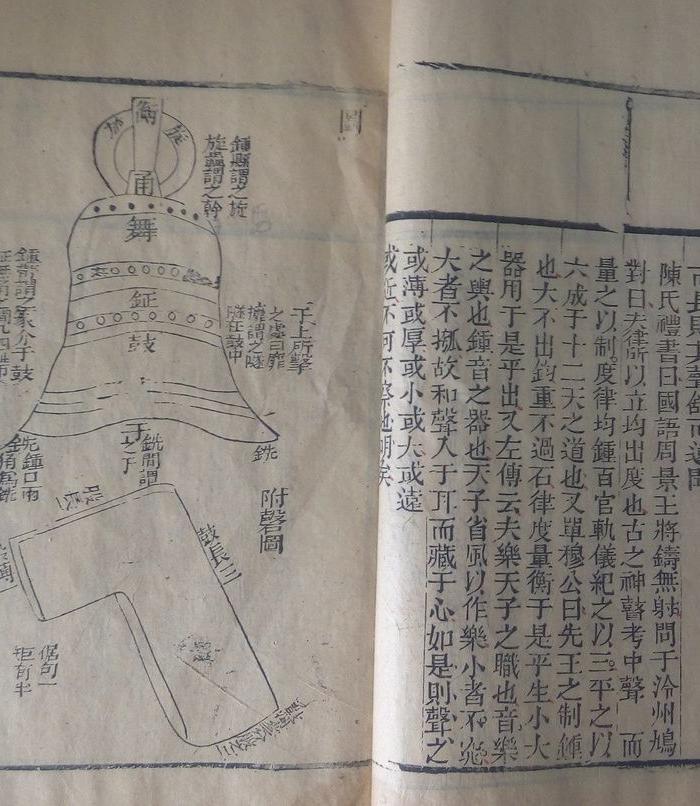 陳氏禮書曰國語周景王將鑄無射問于泠州鳩
對曰夫律所以立均出度也古之神瞽考中聲 而
量之以制。度律均鍾百官軌儀紀之以三。平之以
六成于十二天之道也又單穆公曰先王之制鍾
也大不出鈞重不過石律度量衡于是乎生小大
器用于是乎出又左傳云夫樂天子之職也音樂
之輿也鍾音之器也天子省風以作樂小者不窕
大者不摦故和聲入于耳而藏于心如是則聲之
或薄或厚或小或大或遠
或近不可不察也明矣
衡
旋
甬
舞
鉦
鼓
于
銑
鍾縣謂之旋
旋蟲謂之幹
于上所擊
之處曰靡
攠謂之隧
隧在鼓中
銑間謂
之于
附磬圖
鼓長三
倨句一
矩有半